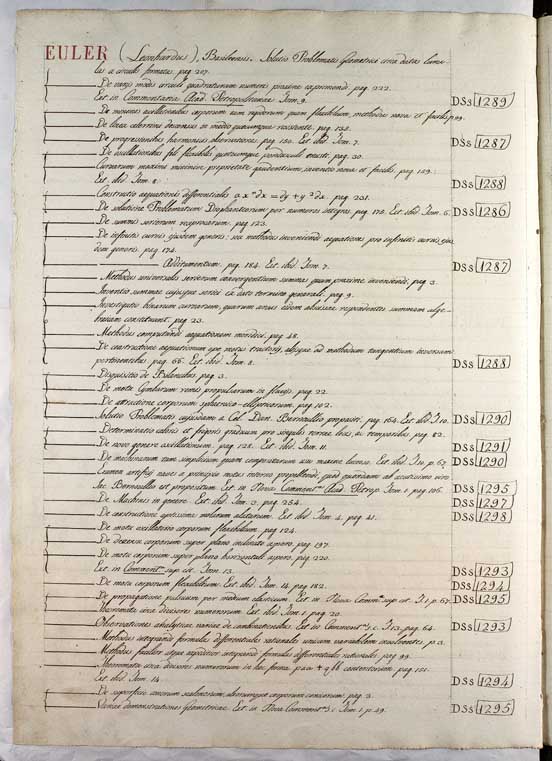 EULER (Leonhardus), Basileensis. Solutio Problematis Geometrici circa datas lunu-
las a circulis formatas. pag. 207.
De variis modis circuli quadraturam numeris proxime exprimendi. pag. 222.
Ext. in Commentariis Acad. Petropolitanae Tom. 9. DSs 1289
De minimis oscillationibus corporum tam rigidorum quam flexibilium, methodus nova et facilis p. 99.
De linea celerrimi descensus in medio quocumque resistente. pag. 135.
De progressionibus harmonicis observationes. pag. 150. Ext. ibid. Tom. 7. DSs 1287
De oscillationibus fili flexilis quotcumque pondusculis onusti. pag. 30.
Curvarum maximi minimive proprietate gaudentium inventio nova et facilis. pag. 159.
Ext. ibid. Tom. 8. DSs 1288
Constructio aequationis differentialis a x^n dx = dy + y² dx. pag. 231.
De solutione Problematum Diophanteorum per numeros integros. pag. 175. Ext. ibid. Tom. 6. DSs 1286
De summis serierum reciprocarum. pag. 123.
De infinitis curvis ejusdem generis: seu methodus inveniendi aequationes pro infinitis curvis ejus-
dem generis. pag. 174.
Additamentum. pag. 184. Ext. ibid. Tom. 7. DSs 1287
Methodus universalis serierum convergentium summas quam proxime inveniendi. pag. 3.
Inventio summae cujusque seriei ex dato termino generali. pag. 9.
Investigatio binarum curvarum, quarum arcus eidem abscissae respondentes summam alge-
braicam constituunt. pag. 23.
Methodus computandi aequationem meridiei. pag. 48.
De constructione aequationum ope motus tractorii, aliisque ad methodum tangentium inversam
pertinentibus. pag. 66. Ext. ibid. Tom. 8. DSs 1288
Disquisitio de Bilancibus. pag. 3.
De motu Cymbarum remis propulsarum in fluviis. pag. 22.
De attractione corporum sphaerico-ellipticorum. pag. 102.
Solutio Problematis cujusdam a Cel. Dan. Bernoullio propositi. pag. 164. Ext. ibid. T. 10. DSs 1290
Determinatio caloris et frigoris graduum pro singulis terrae locis, ac temporibus. pag. 82.
De novo genere oscillationum. pag. 128. Ext. ibid. Tom. 11. DSs 1291
De machinarum tam simplicium quam compositarum usu maxime lucroso. Ext. ibid. T. 10. p. 67. DSs 1290
Examen artificii naves a principio motus interno propellendi, quod quondam ab acutissimo viro
Jac. Bernoullio est propositum. Ext. in Novis Comment. Acad. Petrop. Tom. 1. pag. 106. DSs 1295
De Machinis in genere. Ext. ibid. Tom. 3. pag. 254. DSs 1297
De constructione aptissima molarum alatarum. Ext. ibid. Tom. 4. pag. 41. DSs 1298
De motu oscillatorio corporum flexibilium. pag. 124.
De descensu corporum super plano inclinato aspero. pag. 197.
De motu corporum super plano horizontali aspero. pag. 220.
Ext. in Comment. sup. cit. Tom. 13. DSs 1293
De motu corporum flexibilium. Ext. ibid. Tom. 14. pag. 182. DSs 1294
De propagatione pulsuum per medium elasticum. Ext. in Novis Comm. sup. cit. T. 1. p. 67. DSs 1295
Theoremata circa divisores numerorum. Ext. ibid. Tom. 1. pag. 20.
Observationes analyticae variae de combinationibus. Ext. in Comment. s. c. T. 13. pag. 64. DSs 1293
Methodus integrandi formulas differentiales rationales unicam variabilem involventes. p. 3.
Methodus facilior atque expeditior integrandi formulas differentiales rationales. pag. 99.
Theoremata circa divisores numerorum in hac forma paa ± qbb contentorum. pag. 151.
Ext. ibid. Tom. 14. DSs 1294
De superficie conorum scalenorum, aliorumque corporum conicorum. pag. 3.
Variae demonstrationes Geometriae. Ext. in Novis Comment. s. c. Tom. 1. p. 49. DSs 1295